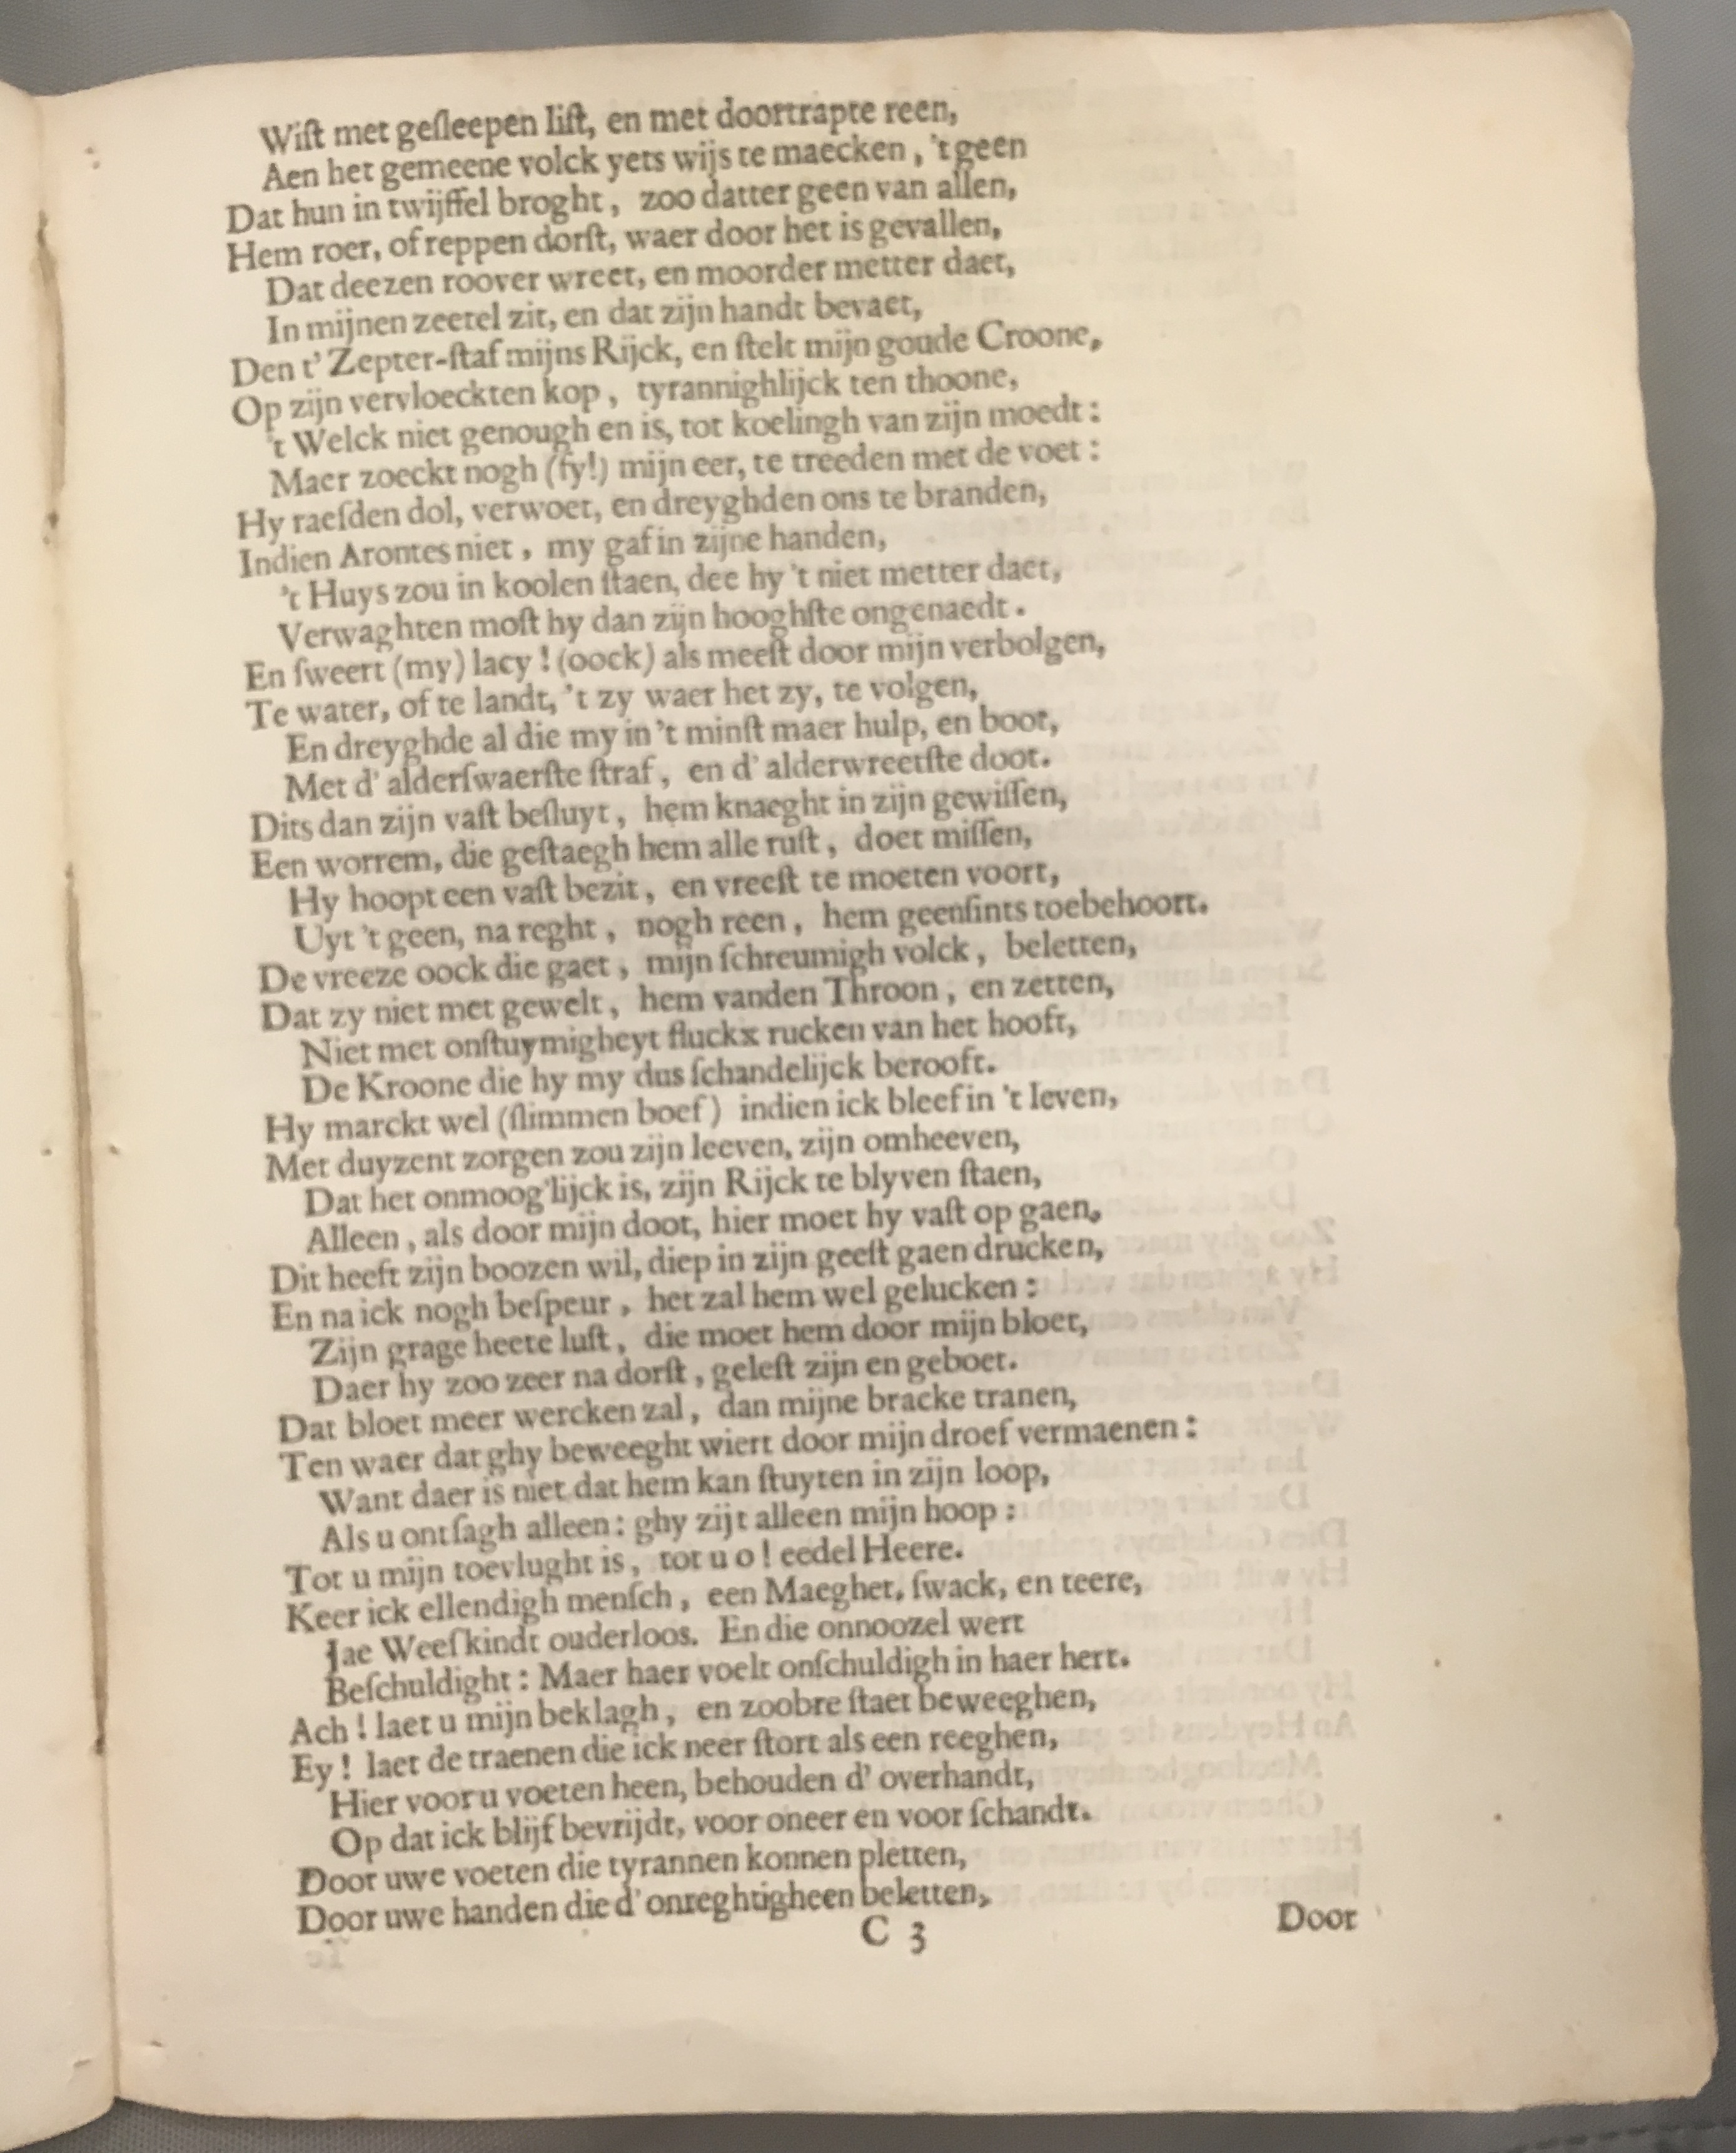 Wiſt met geſleepen liſt, en met doortrapte reen,
Aen het gemeene volck yets wijs te maecken, 't geen
Dat hun in twijffel broght, zoo datter geen van allen,
Hem roer, of reppen dorſt, waer door het is gevallen,
Dat deezen roover wreet, en moorder metter daet,
In mijnen zeetel zit, en dat zijn handt bevaet,
Den t' Zepter-ſtaf mijns Rijck, en ſtelt mijn goude Croone,
Op zijn vervloeckten kop, tyrannighlijck ten thoone,
't Welck niet genough en is, tot koelingh van zijn moedt:
Maer zoeckt nogh (fy!) mijn eer, te treeden met de voet:
Hy raeſden dol, verwoet, en dreyghden ons te branden,
Indien Arontes niet, my gaf in zijne handen,
't Huys zou in koolen ſtaen, dee hy 't niet metter daet,
Verwaghten moſt hy dan zijn hooghſte ongenaedt.
En ſweert (my) lacy! (oock) als meeſt door mijn verbolgen,
Te water, of te landt, 't zy waer het zy, te volgen,
En dreyghde al die my in 't minſt maer hulp, en boot,
Met d' alderſwaerſte ſtraf, en d' alderwreetſte doot.
Dits dan zijn vaſt beſluyt, hem knaeght in zijn gewiſſen,
Een worrem, die geſtaegh hem alle ruſt, doet miſſen,
Hy hoopt een vaſt bezit, en vreeſt te moeten voort,
Uyt 't geen, na reght, nogh reen, hem geenſints toebehoort.
De vreeze oock die gaet, mijn ſchreumigh volck, beletten,
Dat zy niet met gewelt, hem vanden Throon, en zetten,
Niet met onſtuymigheyt fluckx rucken van het hooft,
De Kroone die hy my dus ſchandelijck berooft.
Hy marckt wel (ſlimmen boef) indien ick bleef in 't leven,
Met duyzent zorgen zou zijn leeven, zijn omheeven,
Dat het onmoog'lijck is, zijn Rijck te blyven ſtaen,
Alleen, als door mijn doot, hier moet hy vaſt op gaen.
Dit heeft zijn boozen wil, diep in zijn geeſt gaen drucken,
En na ick nogh beſpeur, het zal hem wel gelucken:
Zijn grage heete luſt, die moet hem door mijn bloet,
Daer hy zoo zeer na dorſt, geleſt zijn en geboet.
Dat bloet meer wercken zal, dan mijne bracke tranen,
Ten waer dat ghy beweeght wiert door mijn droef vermaenen:
Want daer is niet dat hem kan ſtuyten in zijn loop,
Als u ontſagh alleen: ghy zijt alleen mijn hoop:
Tot u mijn toevlught is, tot u o! eedel Heere.
Keer ick ellendigh menſch, een Maeghet, ſwack, en teere,
Jae Weeſkindt ouderloos. En die onnoozel wert
Beſchuldight: Maer haer voelt onſchuldigh in haer hert.
Ach! laet u mijn beklagh, en zoobre ſtaet beweeghen,
Ey! laet de traenen die ick neer ſtort als een reeghen,
Hier voor u voeten heen, behouden d' overhandt,
Op dat ick blijf bevrijdt, voor oneer en voor ſchandt.
Door uwe voeten die tyrannen konnen pletten,
Door uwe handen die d' onreghtigheen beletten,
C 3 Door